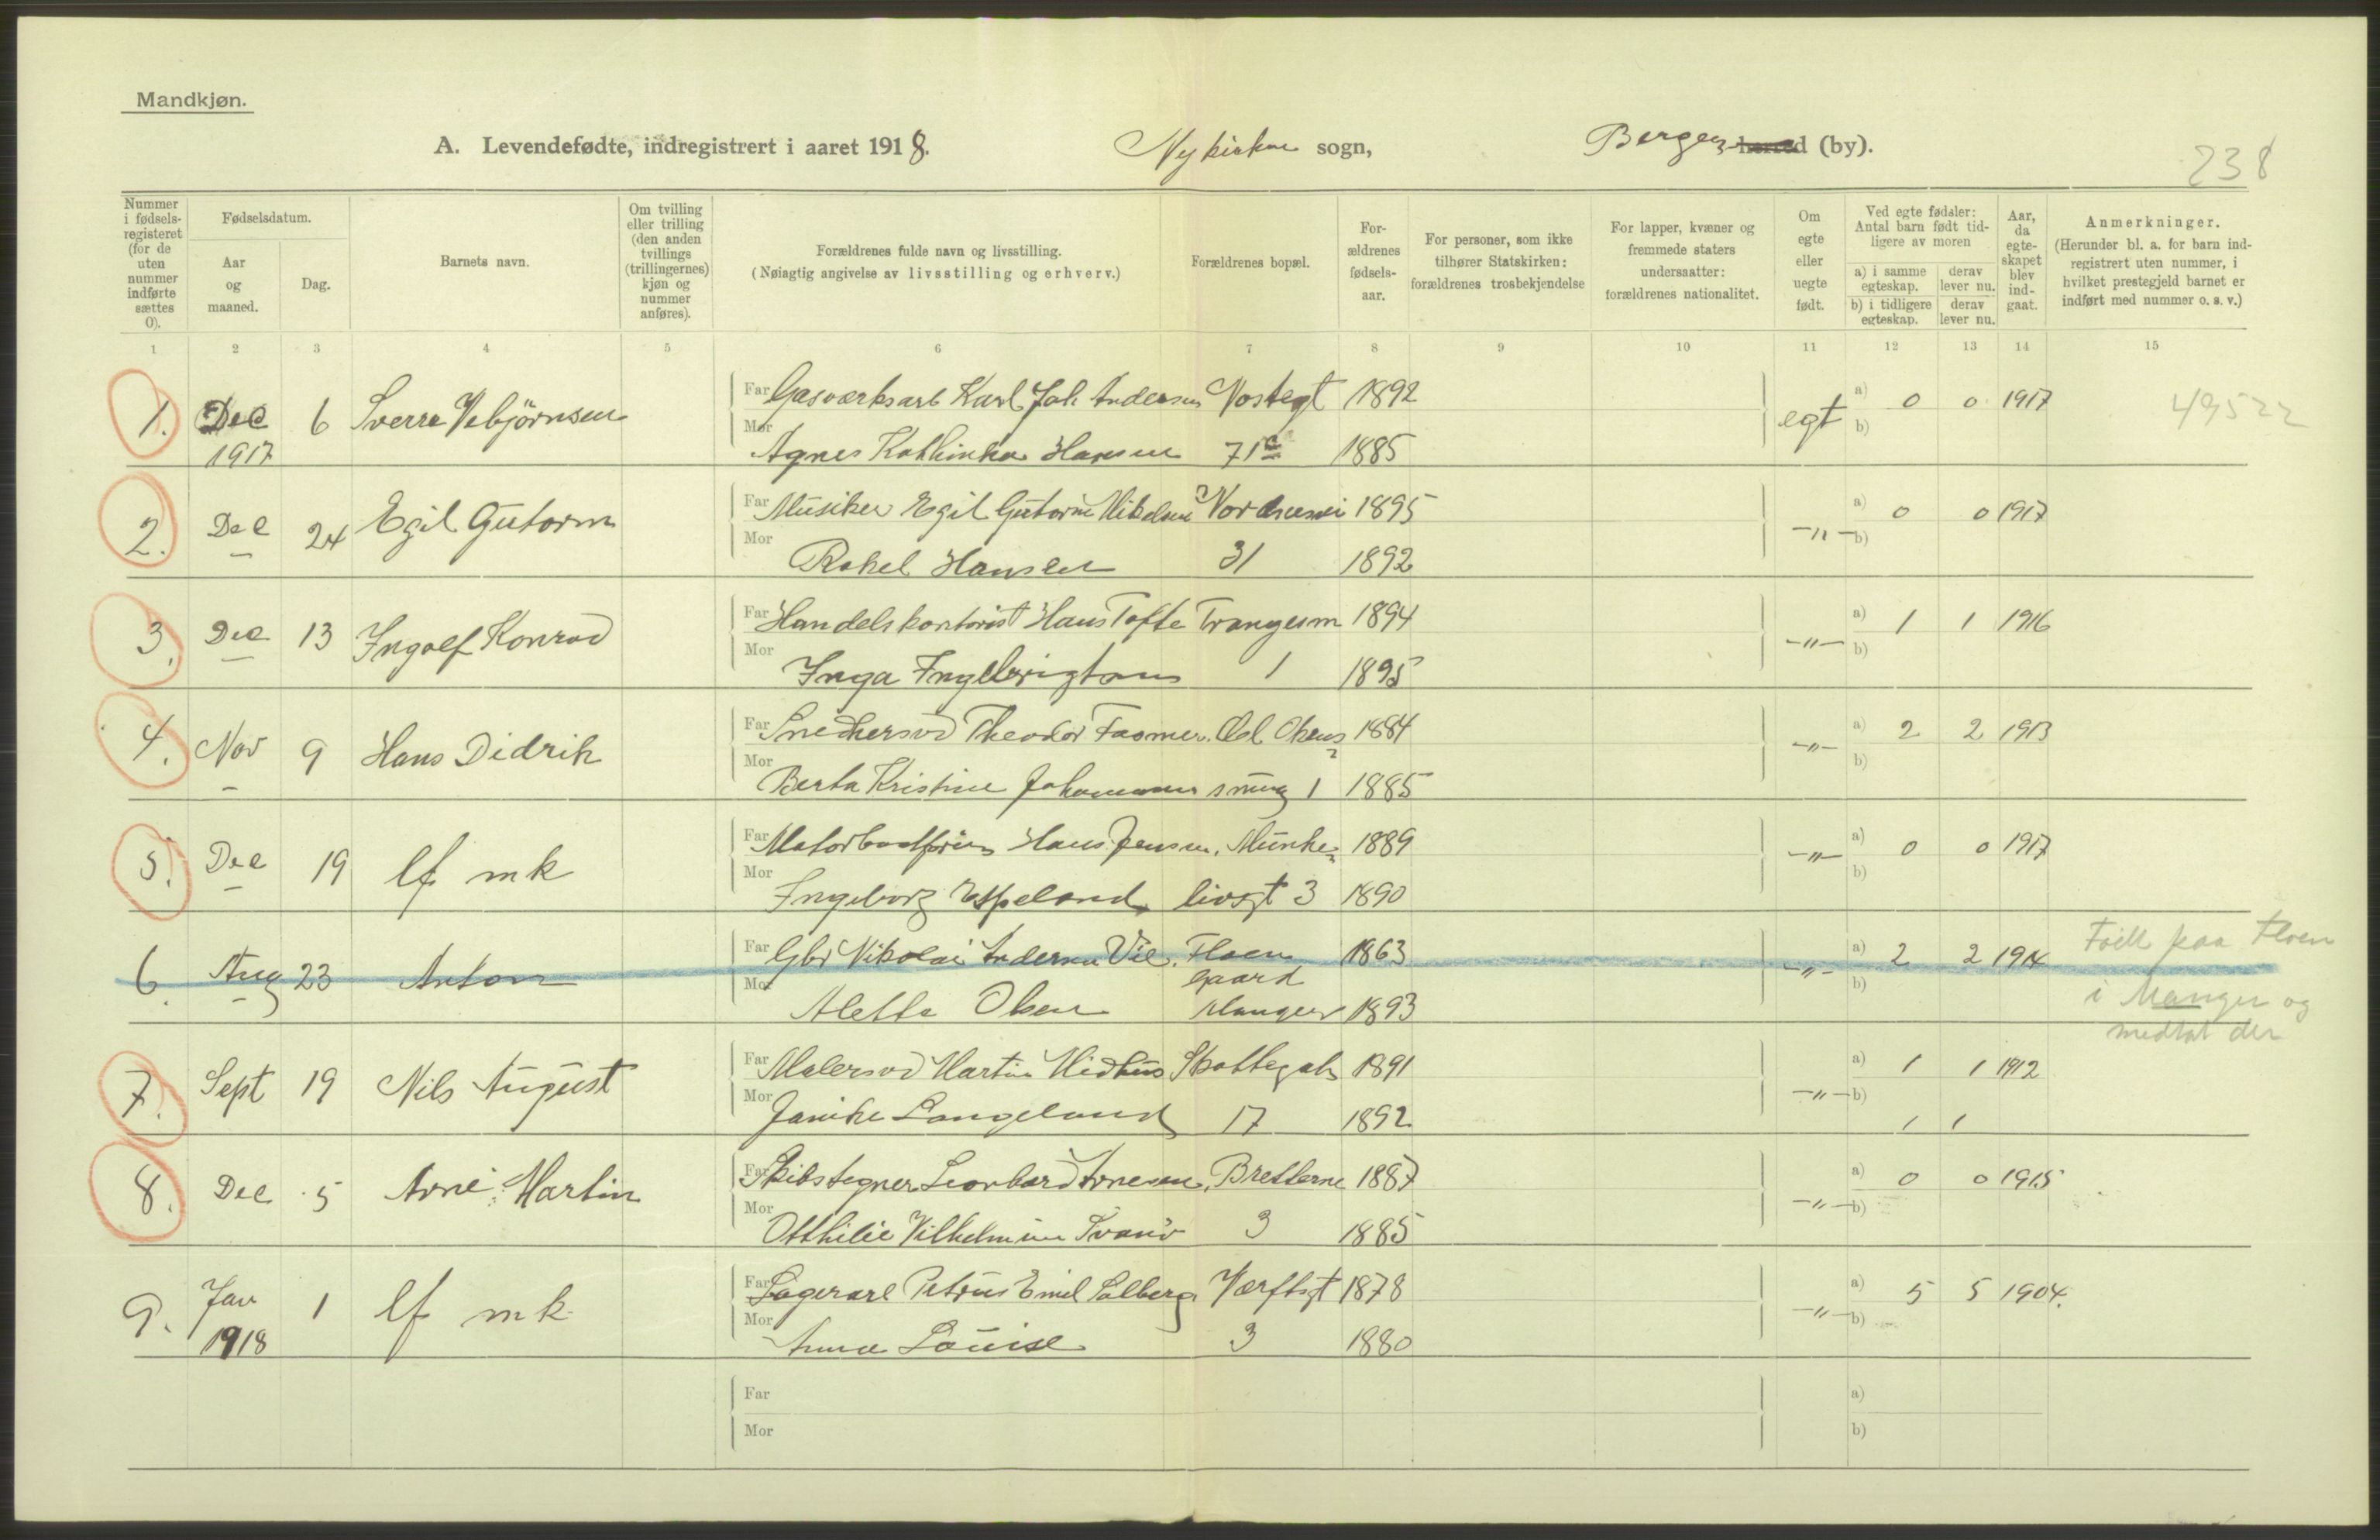 Mandkjøn.
A. Levendefødte, indregistrert i aaret 1918. Nykirken sogn, Bergen herred (by).
238
Nummer i fødsels-registeret (for de uten nummer indførte sættes 0).
Fødselsdatum.
Aar og maaned.
Dag.
Barnets navn.
Om tvilling eller trilling (den anden tvillings (trillingernes) kjøn og nummer anføres).
Forældrenes fulde navn og livsstilling.
(Nøiagtig angivelse av livsstilling og erhverv.)
Forældrenes bopæl.
For-ældrenes fødsels-aar.
For personer, som ikke tilhører Statskirken: forældrenes trosbekjendelse
For lapper, kvæner og fremmede staters undersaatter: forældrenes nationalitet.
Om egte eller uegte født.
Ved egte fødsler: Antal barn født tid-ligere av moren
a) i samme egteskap. derav lever nu.
b) i tidligere egteskap. derav lever nu.
Aar, da egte-skapet blev ind-gaat.
Anmerkninger.
(Herunder bl. a. for barn ind-registrert uten nummer, i hvilket prestegjeld barnet er indført med nummer o. s. v.)
1 2 3 4 5 6 7 8 9 10 11 12 13 14 15
1. Dec 6 Sverre Vebjörnsen Far Gasværksarb Karl Joh Andersen Nostegt 1892 egt a) 0 0 1917 49522
1917 Mor Agnes Kathinka Hansen 71c 1885 b)
2. Dec 24 Egil Gutorm Far Musiker Egil Gutorm Mikelsen 1895 -"- a) 0 0 1917
Mor Rakel Hansen 31 1892 b)
3. Dec 13 Ingolf Konrad Far Handelskontorist Hans Tofte Trangesm 1894 -"- a) 1 1 1916
Mor Inga 1 1895 b)
4. Nov 9 Hans Didrik Far Snedkersvd Theodor Fasmer 1884 -"- a) 2 2 1913
Mor Berta Kristine smug 1 1885 b)
5. Dec 19 lf mk Far Hans Jensen. Munke= 1889 -"- a) 0 0 1917
Mor Ingeborg Espeland livsgt 3 1890 b)
6. Aug 23 Anton Far Gbr Nikolai Andersen Vil. Floen 1863 -"- a) 2 2 1914 Født paa Floen
gaard
Mor Aletta Olsen Manger 1893 b) i Manger og
medtat der
7. Sept 19 Nils August Far Malersvd Martin Midhus Skottegat 1891 -"- a) 1 1 1912
Mor Janike Langeland 17 1892 b) 1 1
8. Dec 5 Arne Martin Far Skibstegner Leonhard Arnesen, Bretterne 1887 -"- a) 0 0 1915
Mor Otthilie Vilhelmine Svanö 3 1885 b)
9. Jan 1 lf mk Far Lagerarb Petrus Emil Solberg Værftsgt 1878 -"- a) 5 5 1904.
1918 Mor Anna Louise 3 1880 b)
Far a)
Mor b)